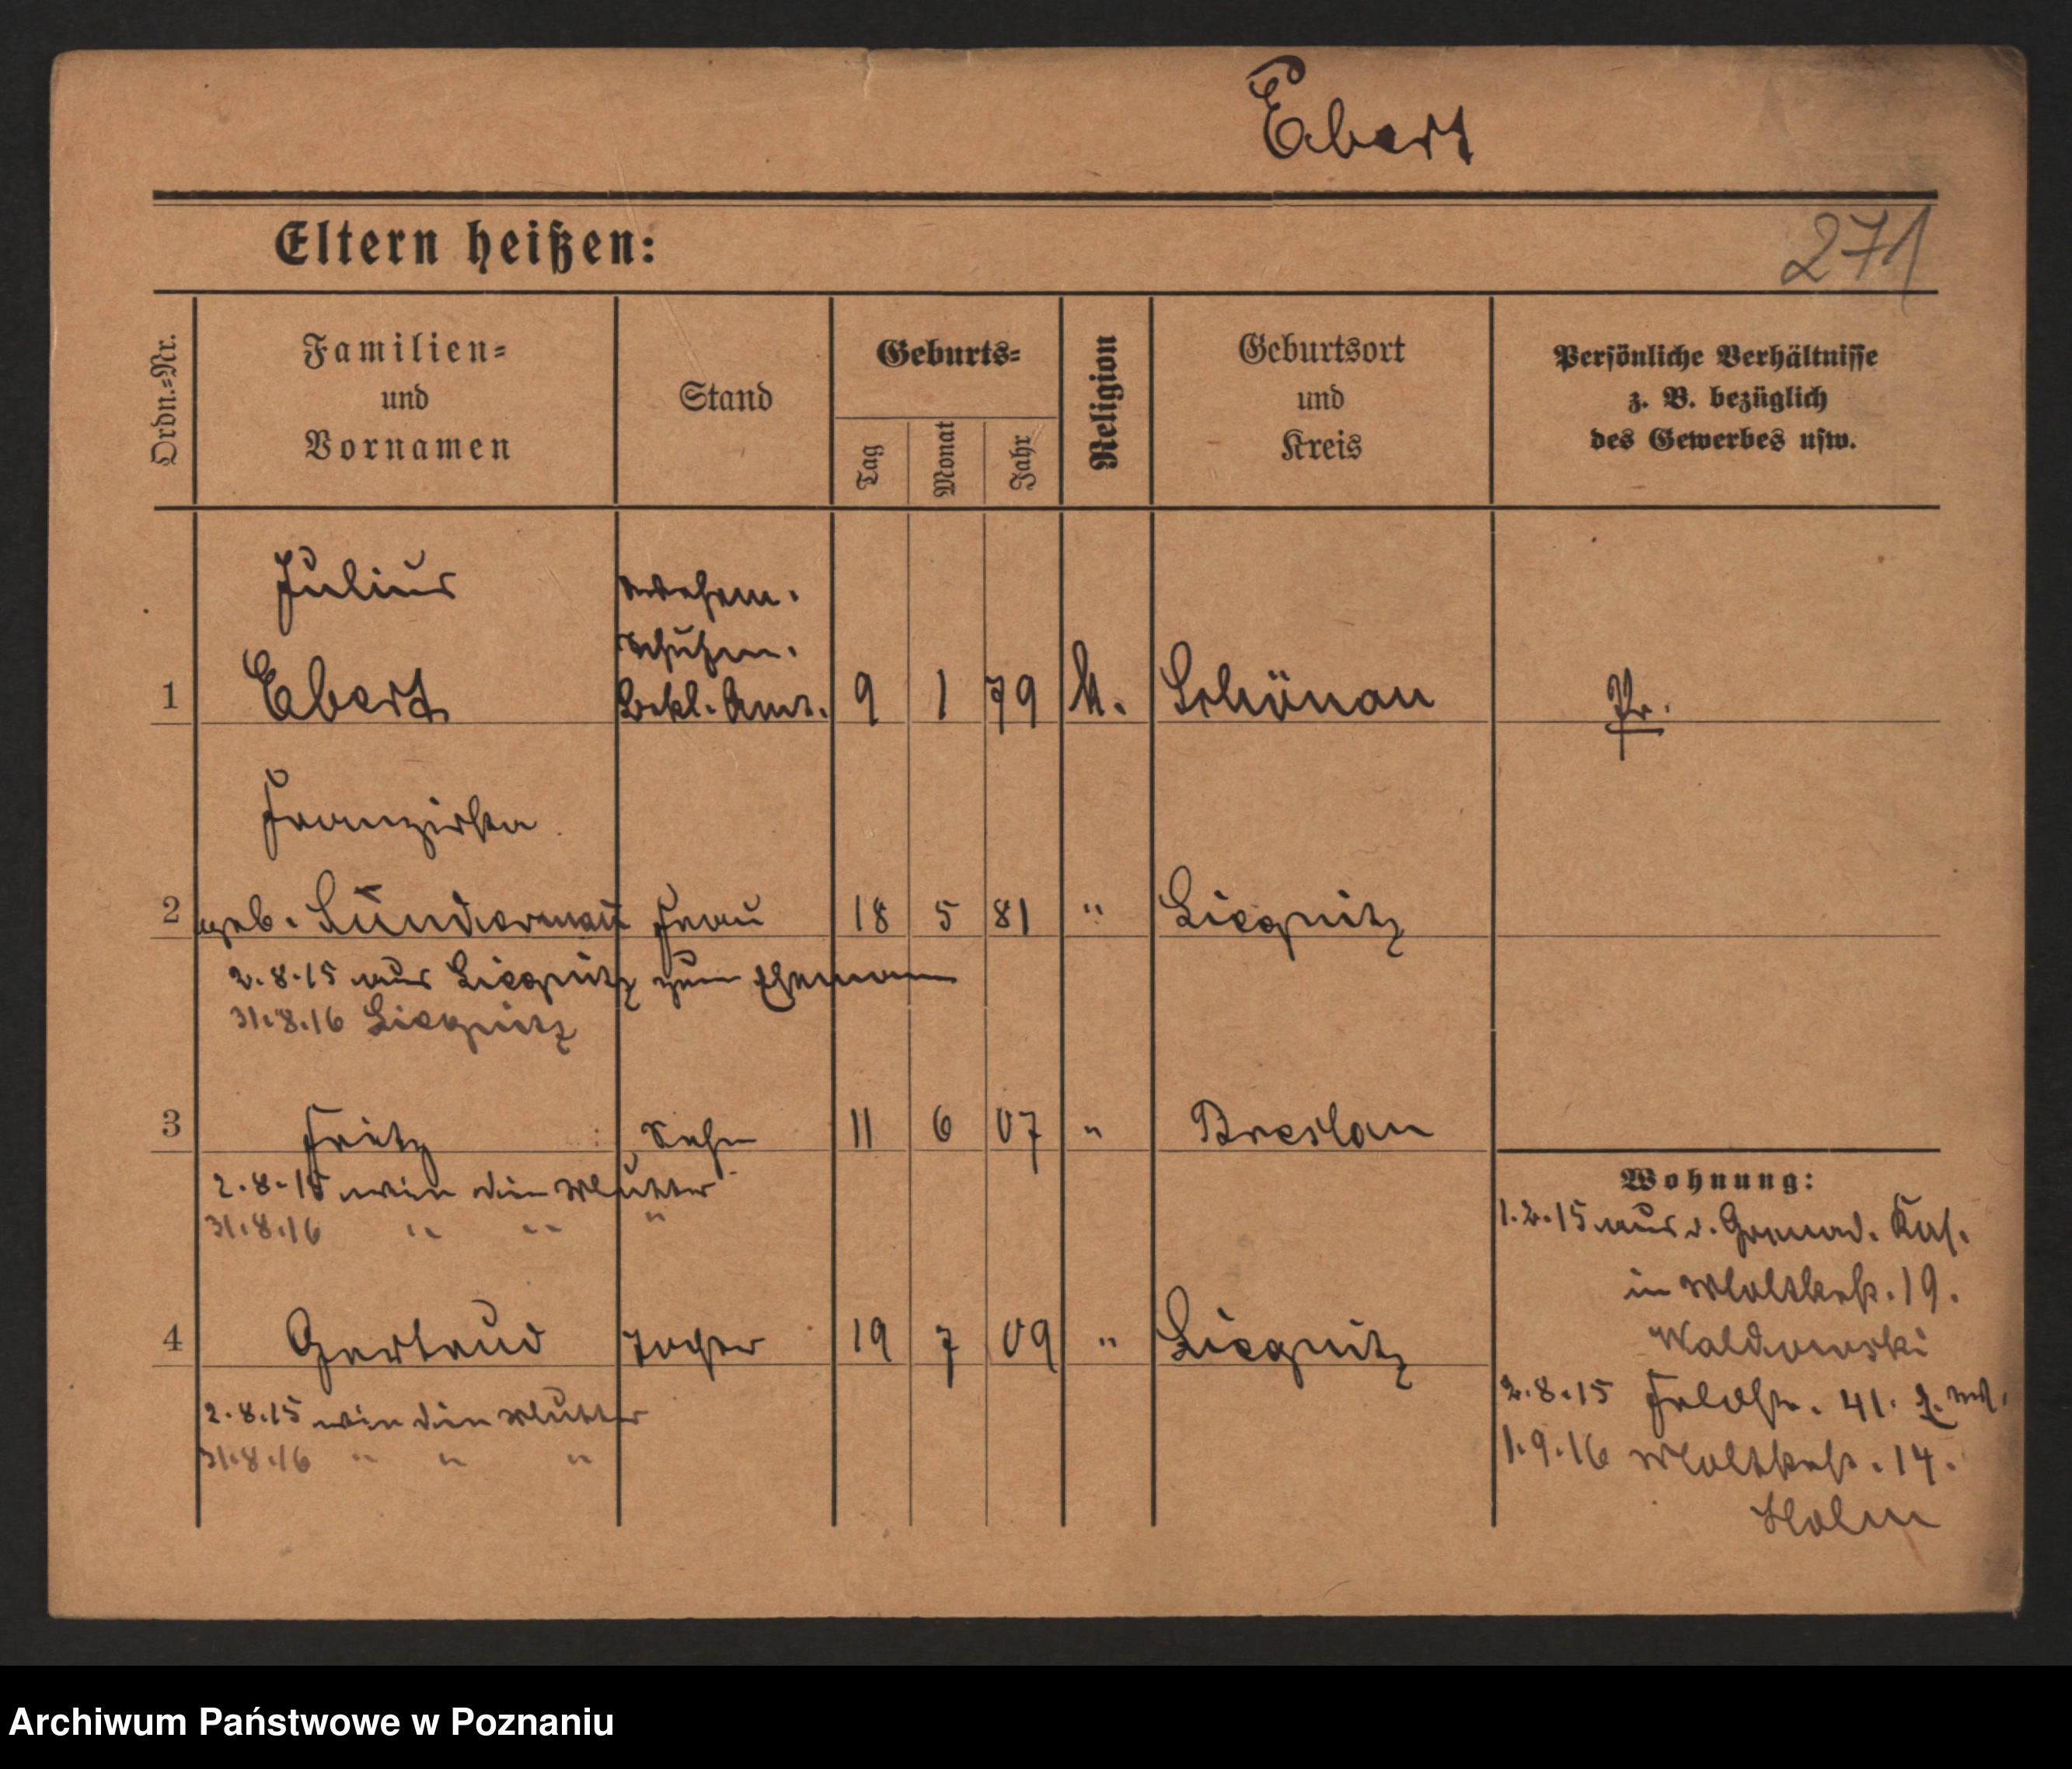 Ebert
Eltern heißen:
271
Ordn.-Nr.
Familien-
und
Vornamen
Stand
Geburts-
Tag
Monat
Jahr
Religion
Geburtsort
und
Kreis
Persönliche Verhältnisse
z. B. bezüglich
des Gewerbes usw.
Julius
Schuhm.
1 Ebert Bekl. Amt. 9 1 79 k. Schönau Pr.
Franziska
2 geb. Frau 18 5 81 " Liegnitz
2.8.15 aus Liegnitz zum Ehemann
31.8.16 Liegnitz
3 Fritz Sohn 11 6 07 " Breslau
2.8.15 wie die Mutter
31.8.16 " " "
4 Gertrud Tochter 19 7 09 " Liegnitz
2.8.15 wie die Mutter
31.8.16 " " "
Wohnung:
1.2.15 aus d. Grenad. Kas.
in Moltkestr. 19.
Waldowski
2.8.15 Feldstr. 41.
1.9.16 Moltkestr. 14.
Holm
Archiwum Państwowe w Poznaniu